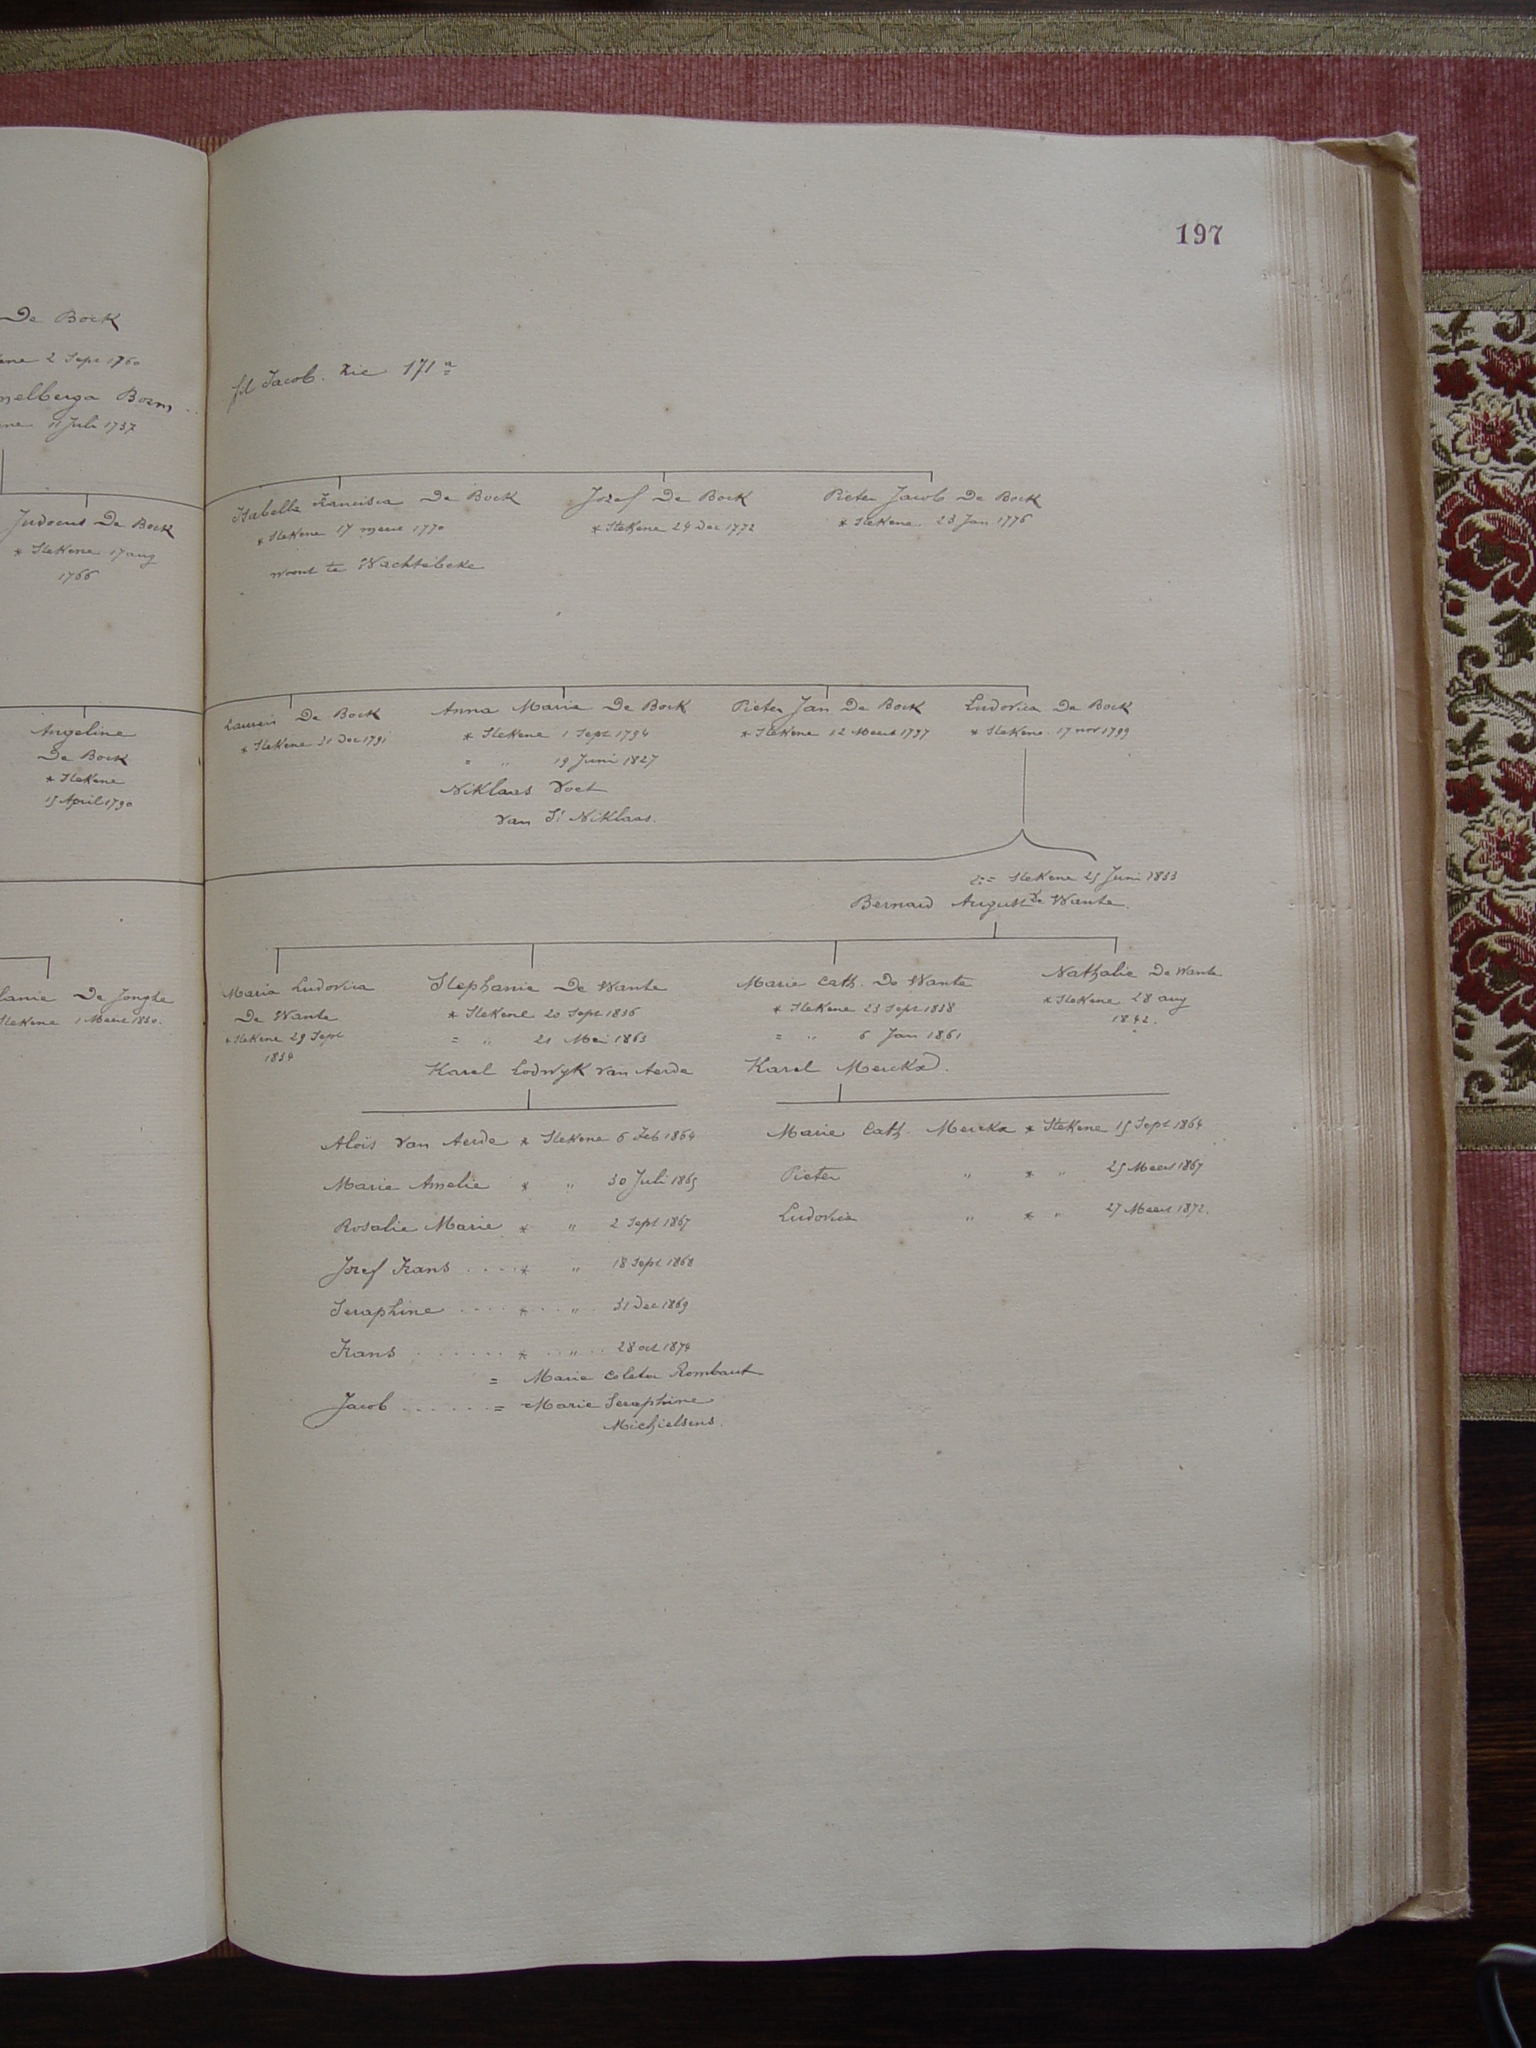 197
De Bock
2 Sept 1760
melberga
Juli 1737
fil Jacob. zie 171 a
Judocus De Bock
* Stekene 17 aug
1766
Isabella Francisca De Bock
* Stekene 17 meert 1770
woont te Wachtebeke
Jozef De Bock
* Stekene 24 Dec 1772
Pieter Jacob De Bock
* Stekene. 23 Jan. 1776
Angeline
De Bock
* Stekene
15 April 1790
Laureis De Bock
* Stekene 21 Dec 1791
Anna Marie De Bock
* Stekene 1 Sept 1794
= " 19 Juni 1827
Niklaas Voet
van St Niklaas.
Pieter Jan De Bock
* Stekene 12 Meert 1797
Ludovica De Bock
* Stekene. 17 nov 1799
2:= Stekene 25 Juni 1833
Bernard August De Wante.
De Jonghe
Stekene 1 Meert 1830.
Maria Ludovica
De Wante
* Stekene 29 Sept
1834
Stephanie De Wante
* Stekene 20 Sept 1836
= " 21 Mei 1863
Karel Lodwyk Van Aerde
Marie Cath. De Wante
* Stekene 23 Sept 1838
= " 6 Jan 1861
Karel Merckx.
Nathalie De Wante
* Stekene 28 aug
1842.
Aloïs Van Aerde * Stekene 6 Feb 1864
Marie Amelie * " 30 Juli 1865
Rosalie Marie * " 2 Sept 1867
Jozef Frans .... * " 18 Sept 1868
Seraphine .... * .. " .. 31 Dec 1869
Frans ....... * .. " .. 28 oct 1874
= Marie Coleta Rombaut
Jacob ...... = Marie Seraphine
Michielsens.
Marie Cath. Merckx * Stekene 15 Sept 1864
Pieter " * " 25 Meert 1867
Ludovica " * " 27 Meert 1872.